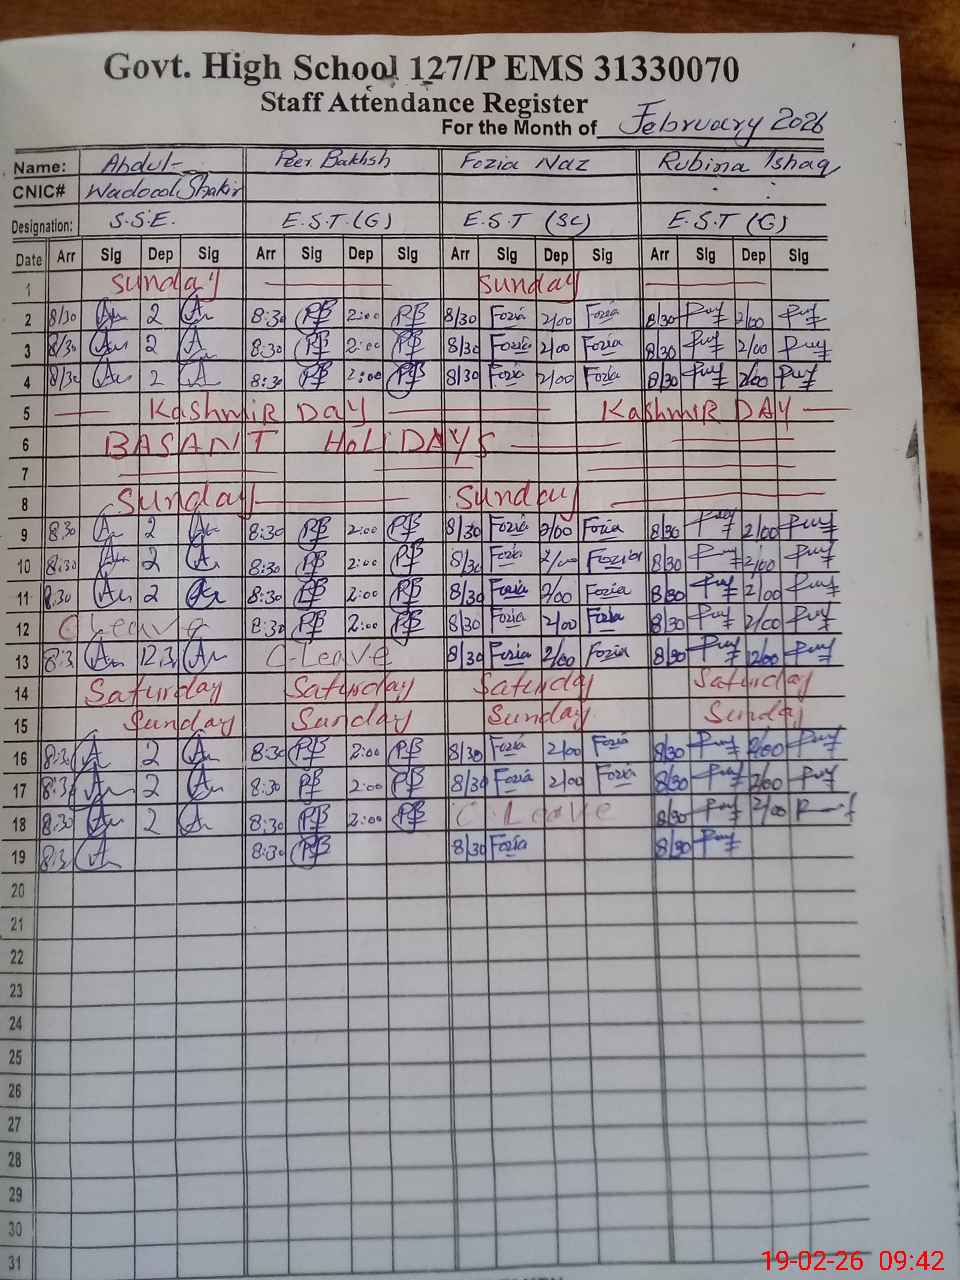 Govt. High School 127/P EMS 31330070
Staff Attendance Register
For the Month of February 2026
Name: Abdul- Peer Bakhsh Fozia Naz Rubina Ishaq
CNIC# Wadood Shakir
Designation: S.S.E. E.S.T.(G) E.S.T (SC) E.S.T (G)
Date Arr Sig Dep Sig Arr Sig Dep Sig Arr Sig Dep Sig Arr Sig Dep Sig
1 Sunday Sunday
2 8/30 2 8:30 PB 2:00 PB 8/30 Fozia 2/00 Fozia 8/30 2/00
3 8/30 2 8:30 PB 2:00 PB 8/30 Fozia 2/00 Fozia 8/30 2/00
4 8/30 2 8:30 PB 2:00 PB 8/30 Fozia 2/00 Fozia 8/30 2/00
5 Kashmir Day Kashmir DAY
6 BASANT HoLiDAYS
7
8 Sunday Sunday
9 8.30 2 8:30 PB 2:00 PB 8/30 Fozia 2/00 Fozia 8/30 2/00
10 8:30 2 8:30 PB 2:00 PB 8/30 Fozia 2/00 Fozia 8/30 2/00
11 8.30 2 8:30 PB 2:00 PB 8/30 Fozia 2/00 Fozia 8/30 2/00
12 C Leave 8:30 PB 2:00 PB 8/30 Fozia 2/00 Fozia 8/30 2/00
13 8:3 12.3 C-Leave 8/30 Fozia 2/00 Fozia 8/30 12/00
14 Saturday Saturday Saturday Saturday
15 Sunday Sunday Sunday Sunday
16 8:3 2 8:30 PB 2:00 PB 8/30 Fozia 2/00 Fozia 8/30 2/00
17 8:3 2 8:30 PB 2:00 PB 8/30 Fozia 2/00 Fozia 8/30 2/00
18 8:30 2 8:30 PB 2:00 PB C-Leave 8/30 2/00
19 8:3 8:30 PB 8/30 Fozia 8/30
20
21
22
23
24
25
26
27
28
29
30
31
19-02-26 09:42